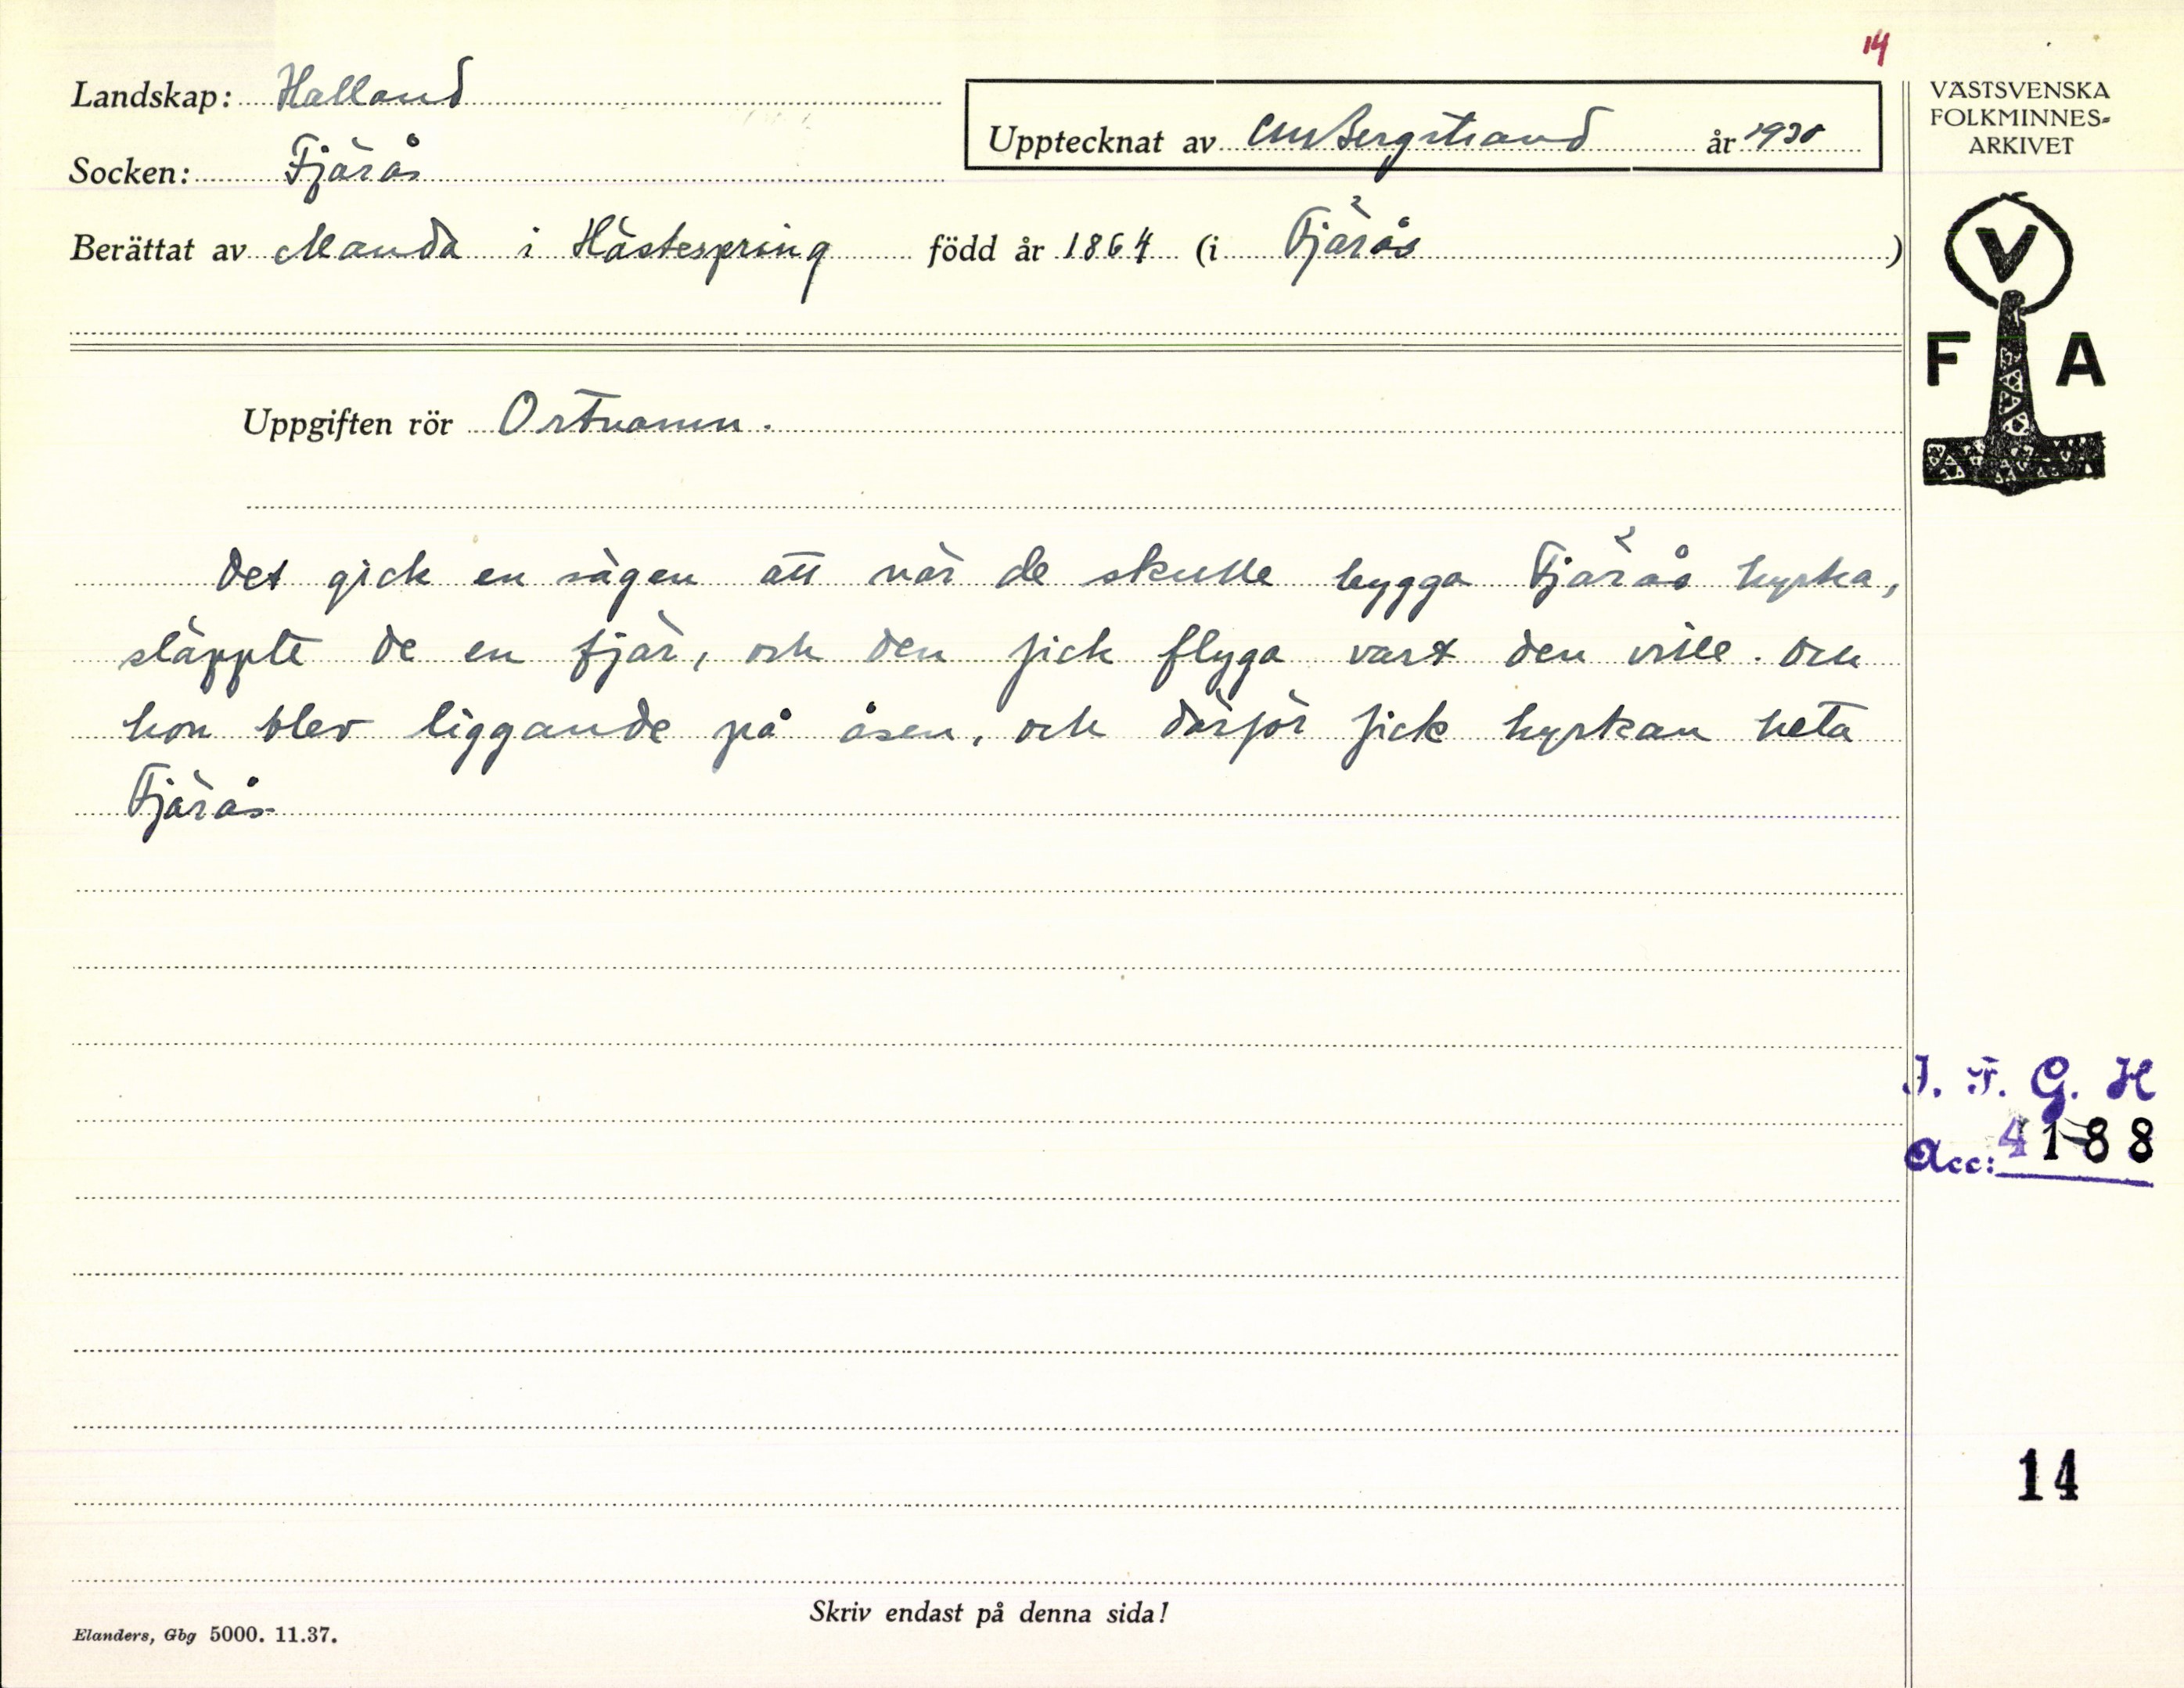 14
Landskap: Halland
Upptecknat av CMBergstrand år 1938
VÄSTSVENSKA
FOLKMINNES-
ARKIVET
Socken: Fjärås
Berättat av Manda i Hästespring född år 1864 (i Fjärås )
V
F A
Uppgiften rör Ortnamn.
Det gick en sägen att när de skulle bygga Fjärås kyrka,
släppte de en fjär, och den fick flyga vart den ville. Och
hon blev liggande på åsen, och därför fick kyrkan heta
Fjärås
I. F. G. H
Acc: 4188
14
Skriv endast på denna sida!
Elanders, Gbg 5000. 11.37.